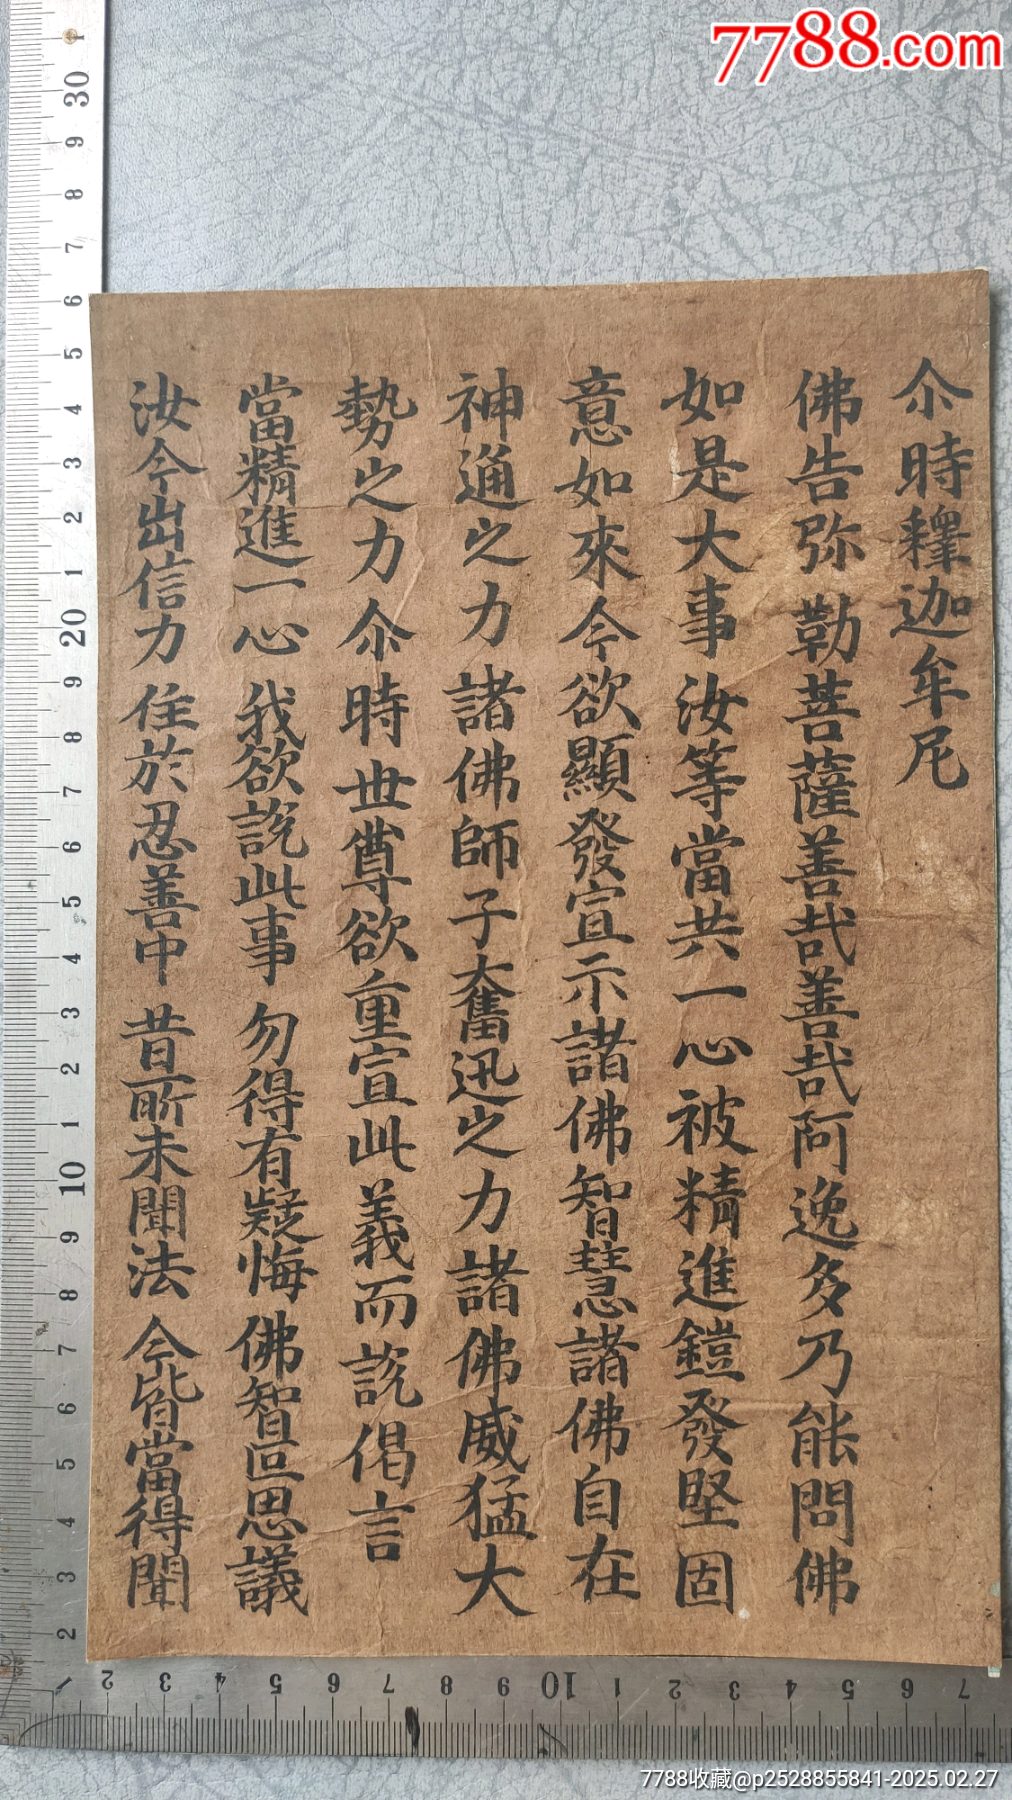 7788.com
尒時釋迦牟尼
佛告弥勒菩薩善哉善哉阿逸多乃能問佛
如是大事汝等當共一心被精進鎧發堅固
意如來今欲顯發宣示諸佛智慧諸佛自在
神通之力諸佛師子奮迅之力諸佛威猛大
勢之力尒時世尊欲重宣此義而說偈言
當精進一心 我欲說此事 勿得有疑悔 佛智叵思議
汝今出信力 住於忍善中 昔所未聞法 今皆當得聞
1 30 9 8 7 6 5 4 3 2 1 20 9 8 7 6 5 4 3 2 1 10 9 8 7 6 5 4 3 2
1 2 3 4 5 6 7 8 9 10 1 2 3 4 5 6 7
7788收藏@p2528855841-2025.02.27